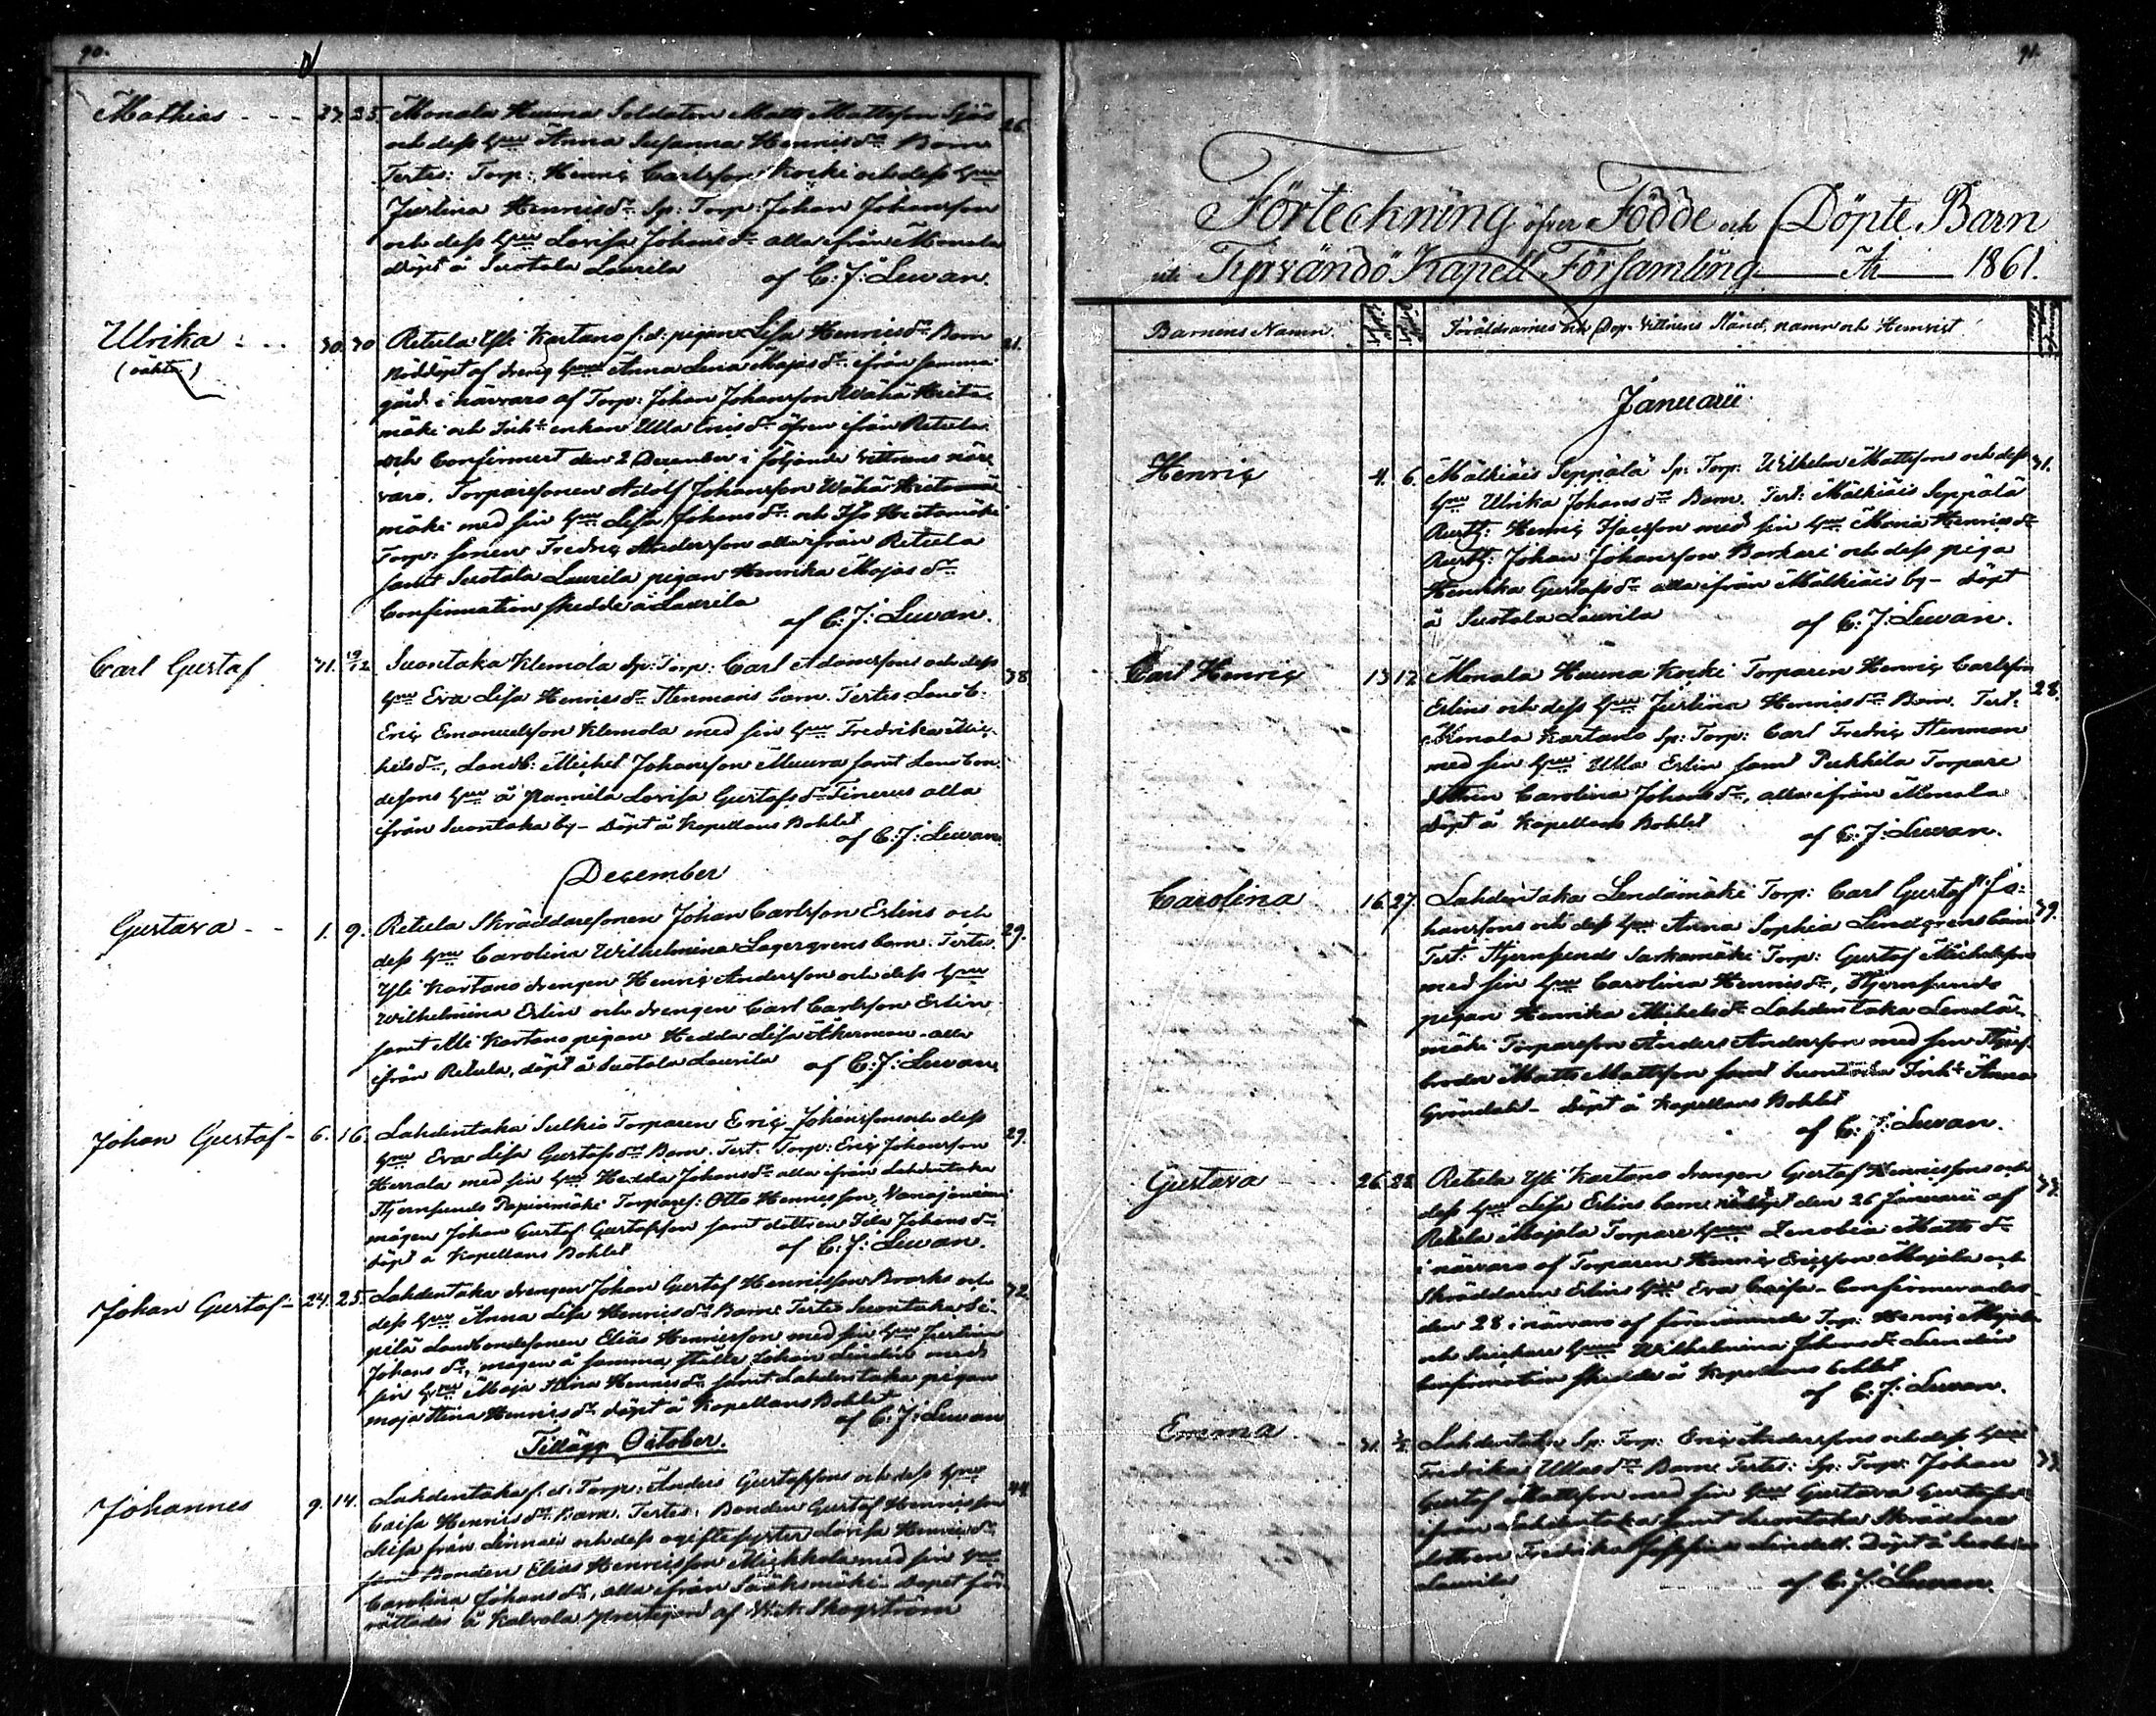 90.
Mathias - - - 23. Monala Huuna Soldaten Matts Mattsson Sjös 26.
och dess hru Anna Susanna Henricsdr Barn
Testes: Torp: Henric Carlsson Kocki och dess hru
Justina Henricsdr Sp: Torp: Johan Johansson
och dess hru Lovisa Johansdr alla ifrån Monala
döpt å Suotala Laurila af C: J: Lucan.
Ulrika - - 30. 30 Retula Yli Kartano pigan Lisa Henricsdr Barn 21.
(oäkta)
Nöddöpt af dreng hru Anna Lena Majasdr ifrån samma
gård i närvaro af Torp: Johan Johansson Wähä Hieta-
mäki och Inh: enkan Ulla Ericsdr öfven ifrån Retula
och Confirmert den 2 December i följande vittnens när-
varo. Torparesonen Adolf Johansson Wähä
mäki med sin hru Lisa Johansdr och Iso Hietamäki
Torp: sonen Fredric Andersson alla ifrån Retula
samt Suotala Laurila pigan Henrika Majasdr
Confirmation skedde å Laurila af C: J: Lucan.
Carl Gustaf 31. 19/12. Suontaka Klemola Sp: Torp: Carl Adamssons och dess 38
hru Eva Lisa Henricsdr Stenmans barn. Testes Landb:
Eric Emanuelsson Klemola med sin hru Fredrika Mic-
helsdr, Landb: Michel Johansson Muura samt Landbon-
desons hru å Pannila Lovisa Gustafsdr Finerus alla
ifrån Suontaka by - döpt å Kapellans Bohlet
af C: J: Lucan.
December
Gustava - - 1. 9. Retula Skräddaresonen Johan Carlsson Erlins och 29.
dess hru Carolina Wilhelmina Lagergrens barn. Testes
Yli Kartano drengen Henric Andersson och dess hru
Wilhelmina Erlin och drengen Carl Carlsson Erlin
samt Ali Kartano pigan Hedda Lisa Åkerman - alla
ifrån Retula, döpt å Suotala Laurila af C: J: Lucan,
Johan Gustaf - 6. 16. Lahdentaka Sulkio Torparen Eric Johanssons och dess 29.
hru Eva Lisa Gustafsdr Barn. Test. Torp: Eric Johansson
Herrala med sin hru Hedda Johansdr alla ifrån Lahdentaka
Stjernsunds Papinmäki Torpares: Otto Henricsson,
mågen Johan Gustaf Gustafsson samt dottren Ida Johansdr
döpt å Kapellans Bohlet af C: J: Lucan.
Johan Gustaf - 24. 25. Lahdentaka drengen Johan Gustaf Henricsson Brorks och 32.
dess hru Anna Lisa Henricsdr Barn. Testes Suontaka Se-
pilä Landbondesonen Elias Henricsson med sin hru Justina
Johansdr, mågen å samma ställe Johan Lindén med
sin hru Maja Stina Henricsdr samt Lahdentaka pigan
Maja Stina Henricsdr döpt å Kapellans Bohlet
af C: J: Lucan
Tillägg October.
Johannes 9. 14. Lahdentaka f. d. Torp: Anders Gustafssons och dess hru 44.
Caisa Henricsdr Barn. Testes: Bonden Gustaf Henricsson
från och dess ogifte syster Lovisa Henricsdr
samt Bonden Elias Henricsson Mickkola med sin hru
Carolina Johansdr, alla ifrån Sääksmäki - dopet för-
rättades å Kalvola Prestegård af Vict: Skogström
91.
Förteckning öfver Födde och Döpte Barn
uti Tyrväntö Kapell Församling År 1861.
Barnens Namn. Föräldrarnes och Dop-Vittnens Stånd, namn och Hemvist
Januarii
Henric 4. 6. Mälkiäis Seppälä Sp: Torp: Wilhelm Mattssons och dess 31.
hru Ulrika Johansdr Barn. Test: Mälkiäis Seppälä
Rusth: Henric Isacsson med sin hru Maria Henricsdr
Rusth: Johan Johansson Borkari och dess piga
Henrika Gustafsdr alla ifrån Mälkiäis by - döpt
å Suotala Laurila af C: J: Lucan.
Carl Henric 13 17. Monala Huuna Kocki Torparen Henric Carlsson 28.
Erlins och dess hru Justina Henricsdr Barn. Test:
Monala Kartano Sp: Torp: Carl Fredric Stenman
med sin hru Ulla Erlin samt Pukkila Torpare
dottren Carolina Johansdr, alla ifrån Monala
döpt å Kapellans Bohlet af C: J: Lucan.
Carolina 16. 27. Lahdentaka Lendämäki Torp: Carl Gustaf Jo- 39.
hanssons och dess hru Anna Sophia Lindgrens barn
Test: Stjernsunds Sarkamäki Torp: Gustaf Michelsson
med sin hru Carolina Henricsdr, Stjernsunds
pigan Henrika Michelsdr Lahdentaka Lendä-
mäki Torpareson Anders Andersson med sin Styf-
broder Matts Mattsson samt Suontaka Inh: Anna
Gröndahl - döpt å Kapellans Bohlet
af C: J: Lucan.
Gustava - - 26. 28. Retula Yli Kartano drengen Gustaf Henricssons och 37.
dess hru Lisa Erlins barn. nöddöpt den 26 Januarii af
Retula Majala Torpare hru Zenobia Mattsdr
i närvaro af Torparen Henric Ericsson Majala och
Skräddaren Erlins hru Eva Caisa - Confirmerades
den 28 i närvaro af förenämnde Torp: Henric Majala
och Snickare hru Wilhelmina Johansdr Lundén
Confirmation skedde å Kapellans bohlet
af C: J: Lucan.
Emma - 31. Lahdentaka Sp: Torp: Eric Anderssons och dess hru 33.
Fredrika Ullasdr Barn. Testes: Sp: Torp: Johan
Gustaf Mattsson med sin hru Gustava Gustafsdr
ifrån Lahdentaka samt Suontaka Skräddare
dottren Fredrika Sophia Lindell. Döpt å Suotala
Laurila af C: J: Lucan.